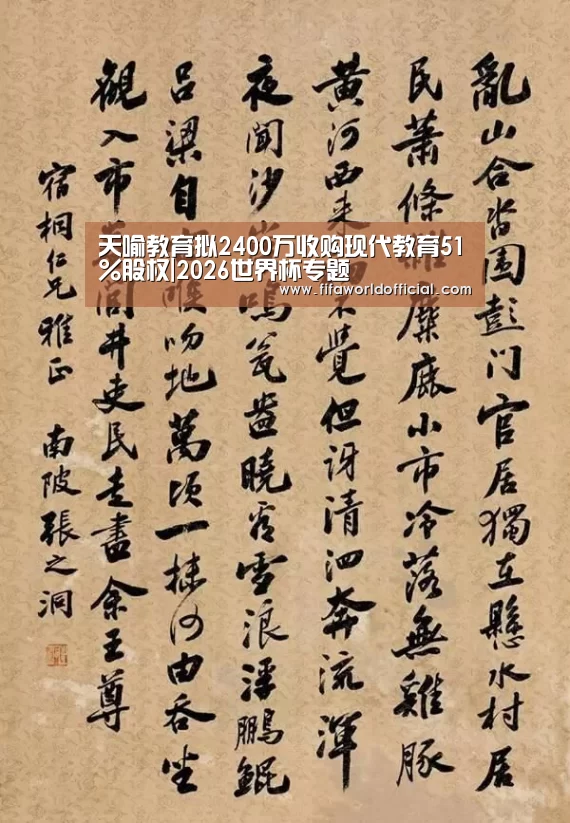 亂山合沓围彭门官居獨在懸水村居
民蕭條雜麋鹿小市冷落無雞豚
黄河西来不覺但訝清泗奔流渾
夜聞沙鳴瓮盎曉看雪浪浮鵬鯤
吕梁自喉吻地萬頃一抹何由吞坐
觀入市閭井吏民走盡余王尊
宿桐仁兄雅正 南陂張之洞
天喻教育拟2400万收购现代教育51
%股权|2026世界杯专题
www.fifaworldofficial.com